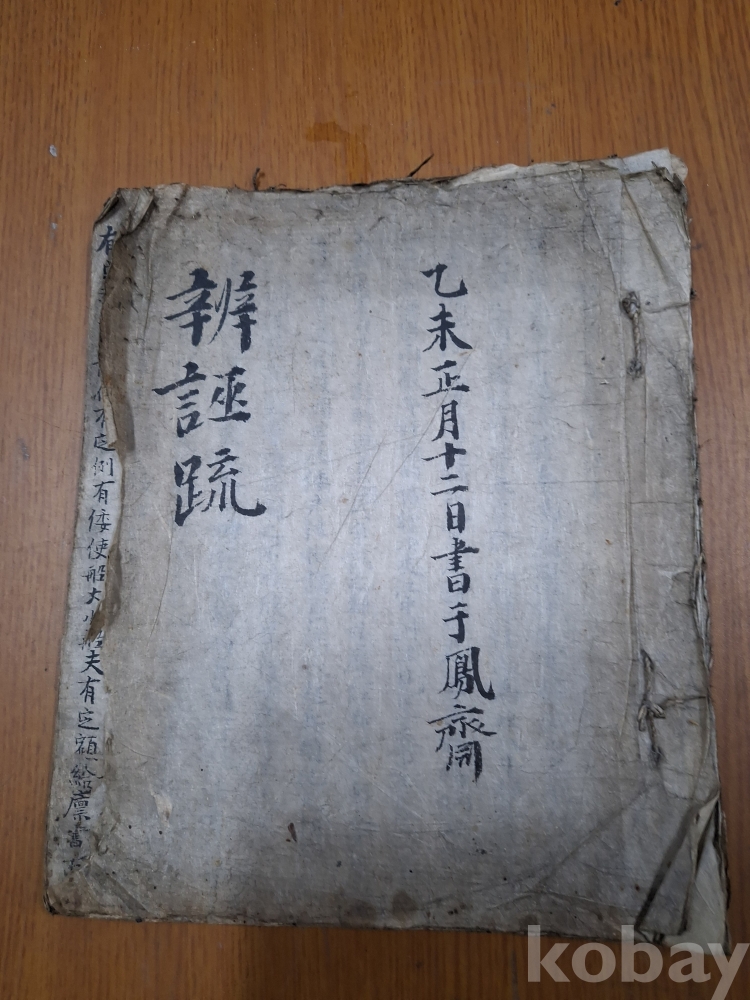 乙未正月十二日書于鳳齋
辨誣疏
有定例有倭使船大小船夫有定額給廩
kobay